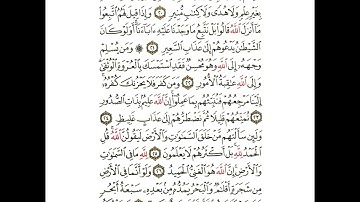 بِغَيْرِ عِلْمٍ وَلَا هُدًى وَلَا كِتَٰبٍ مُّنِيرٍ ٢٠ وَإِذَا قِيلَ لَهُمُ ٱتَّبِعُوا۟
مَآ أَنزَلَ ٱللَّهُ قَالُوا۟ بَلْ نَتَّبِعُ مَا وَجَدْنَا عَلَيْهِ ءَابَآءَنَآ أَوَلَوْ كَانَ
ٱلشَّيْطَٰنُ يَدْعُوهُمْ إِلَىٰ عَذَابِ ٱلسَّعِيرِ ٢١ ۞ وَمَن يُسْلِمْ
وَجْهَهُۥٓ إِلَى ٱللَّهِ وَهُوَ مُحْسِنٌ فَقَدِ ٱسْتَمْسَكَ بِٱلْعُرْوَةِ ٱلْوُثْقَىٰ
وَإِلَى ٱللَّهِ عَٰقِبَةُ ٱلْأُمُورِ ٢٢ وَمَن كَفَرَ فَلَا يَحْزُنكَ كُفْرُهُۥٓ
إِلَيْنَا مَرْجِعُهُمْ فَنُنَبِّئُهُم بِمَا عَمِلُوٓا۟ إِنَّ ٱللَّهَ عَلِيمٌۢ بِذَاتِ ٱلصُّدُورِ
٢٣ نُمَتِّعُهُمْ قَلِيلًا ثُمَّ نَضْطَرُّهُمْ إِلَىٰ عَذَابٍ غَلِيظٍ ٢٤
وَلَئِن سَأَلْتَهُم مَّنْ خَلَقَ ٱلسَّمَٰوَٰتِ وَٱلْأَرْضَ لَيَقُولُنَّ ٱللَّهُ قُلِ
ٱلْحَمْدُ لِلَّهِ بَلْ أَكْثَرُهُمْ لَا يَعْلَمُونَ ٢٥ لِلَّهِ مَا فِى ٱلسَّمَٰوَٰتِ
وَٱلْأَرْضِ إِنَّ ٱللَّهَ هُوَ ٱلْغَنِىُّ ٱلْحَمِيدُ ٢٦ وَلَوْ أَنَّمَا فِى ٱلْأَرْضِ
مِن شَجَرَةٍ أَقْلَٰمٌ وَٱلْبَحْرُ يَمُدُّهُۥ مِنۢ بَعْدِهِۦ سَبْعَةُ أَبْحُرٍ